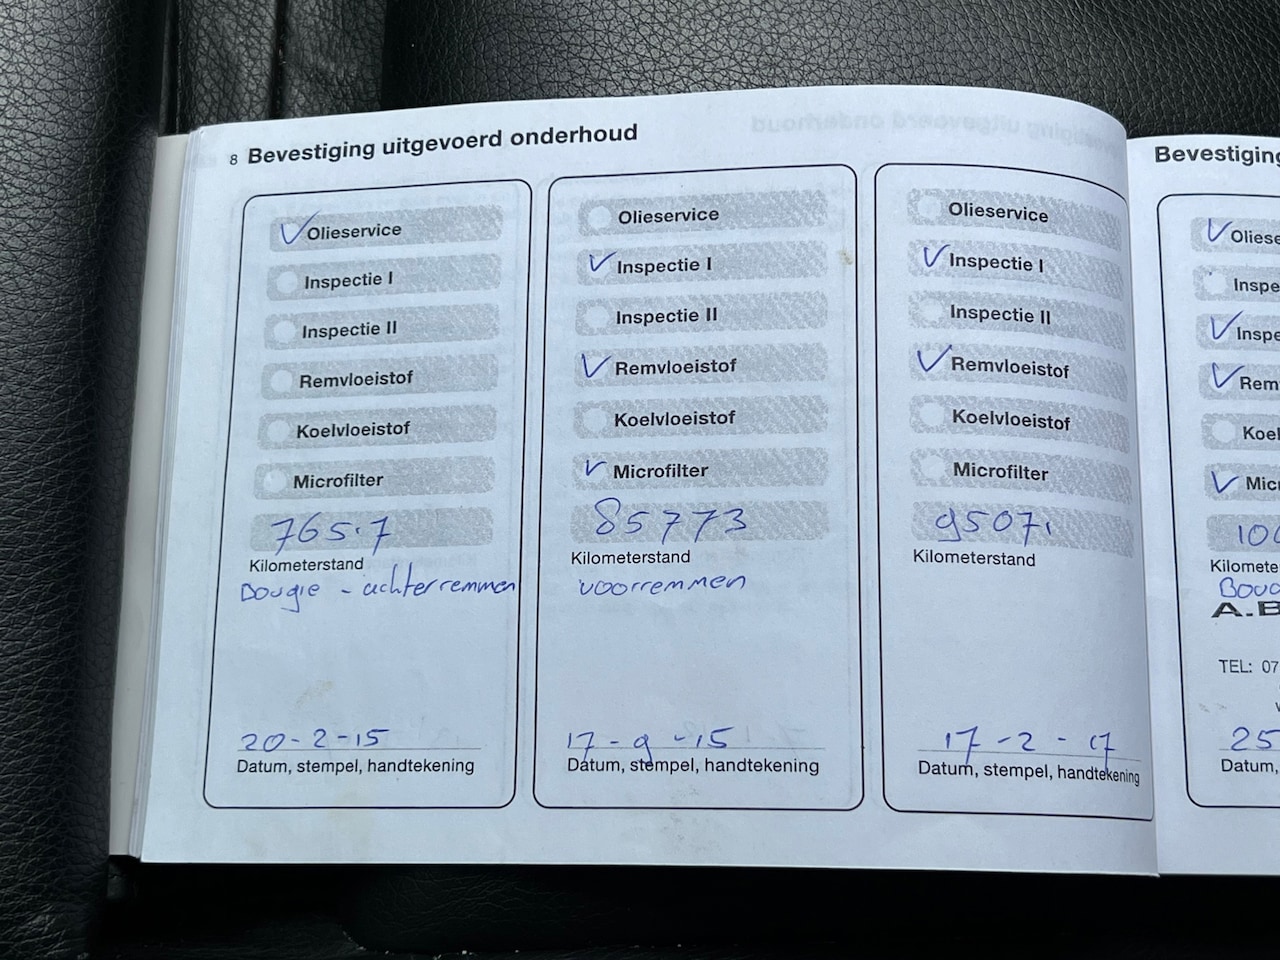 8 Bevestiging uitgevoerd onderhoud
Olieservice
Inspectie I
Inspectie II
Remvloeistof
Koelvloeistof
Microfilter
765.7
Kilometerstand
Bougie - achterremmen
20-2-15
Datum, stempel, handtekening
Olieservice
Inspectie I
Inspectie II
Remvloeistof
Koelvloeistof
Microfilter
85773
Kilometerstand
voorremmen
17-9-15
Datum, stempel, handtekening
Olieservice
Inspectie I
Inspectie II
Remvloeistof
Koelvloeistof
Microfilter
Kilometerstand
17-2-17
Datum, stempel, handtekening
Bevestiging
Oliese
Inspe
Inspe
Rem
Koel
Micr
Kilomete
A.B
TEL: 07
25
Datum,